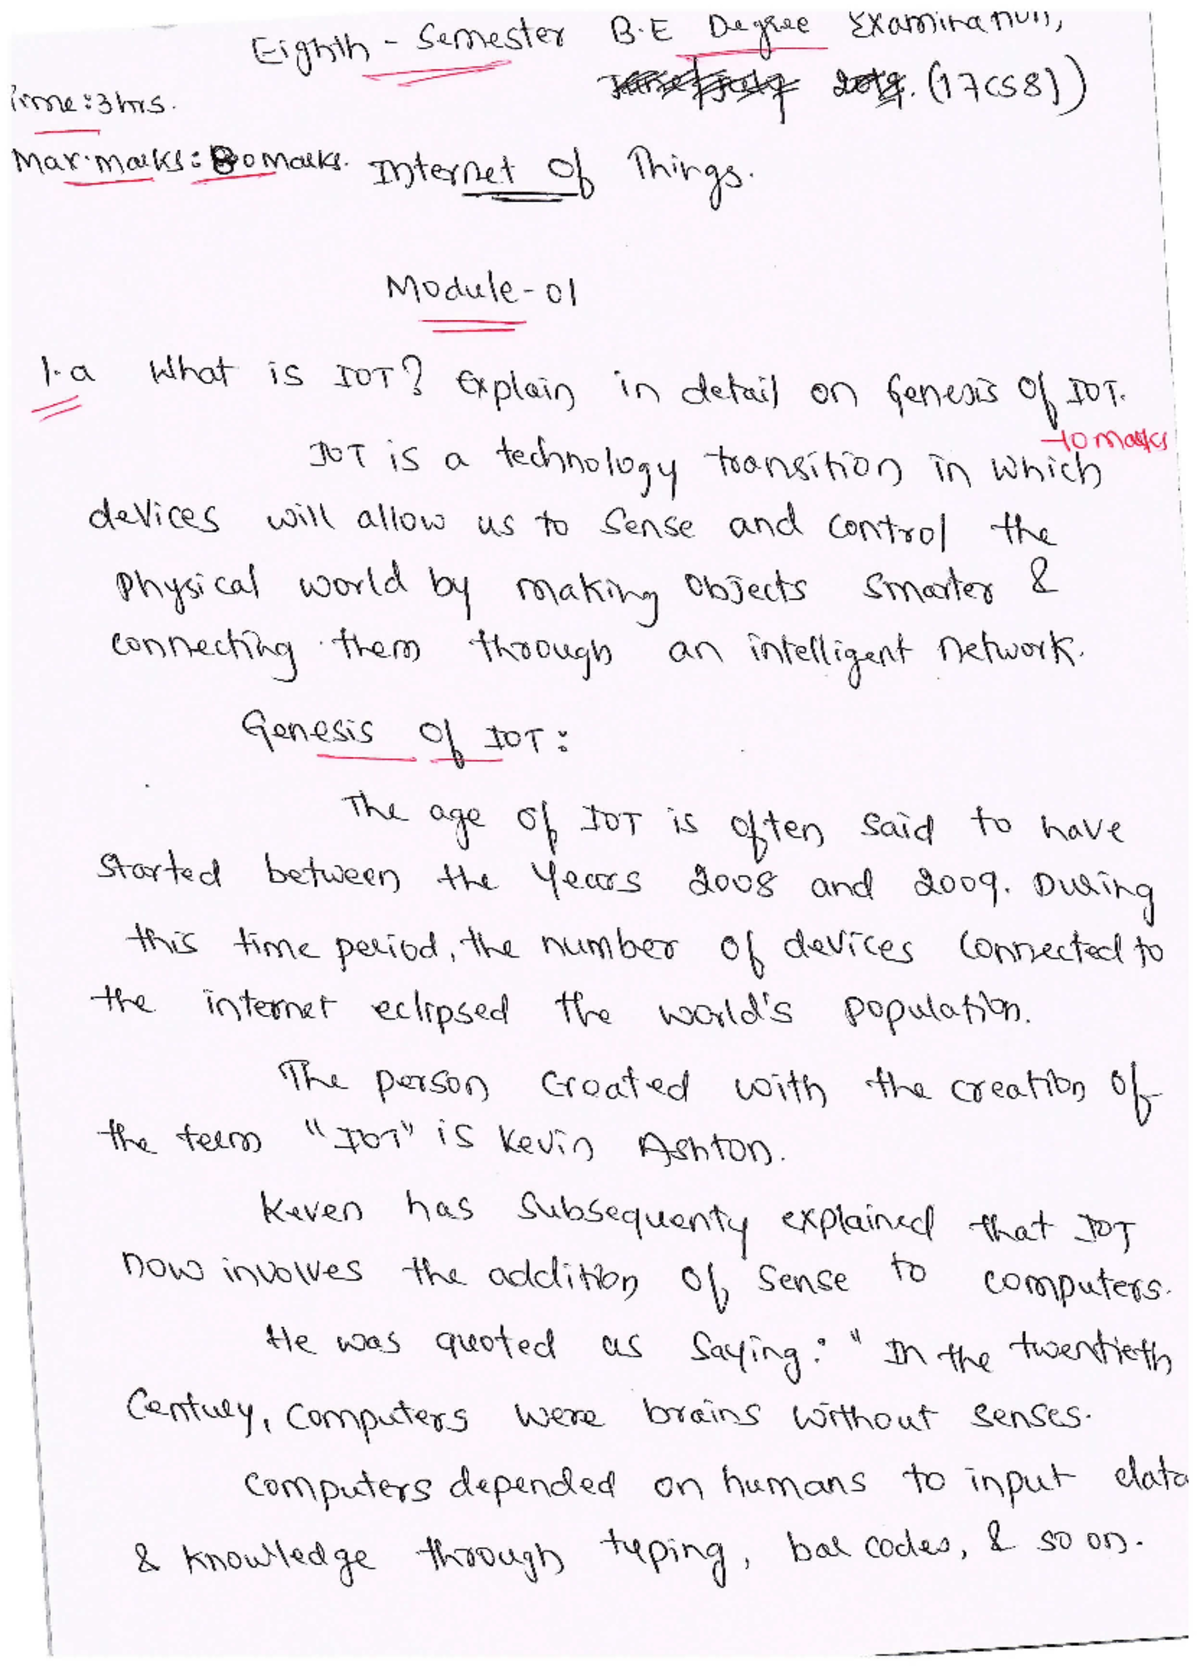 Eighth - Semester B.E Degree Examination,
(17CS81)
Time: 3 hrs.
Max. marks: 80 marks. Internet Of Things.
Module-01
1. a What is IOT? Explain in detail on Genesis Of IOT.
-10 marks
IOT is a technology transition in which
devices will allow us to Sense and control the
Physical world by making Objects Smarter &
connecting them through an intelligent network.
Genesis Of IOT:
The age Of IOT is often said to have
started between the years 2008 and 2009. During
this time period, the number of devices connected to
the internet eclipsed the world's population.
The person created with the creation of
the term "IOT" is Kevin Ashton.
Keven has subsequenty explained that IOT
now involves the addition Of Sense to computers.
He was quoted as saying: " In the twentieth
Century, computers were brains without senses.
computers depended on humans to input data
& knowledge through typing, bar codes, & so on.